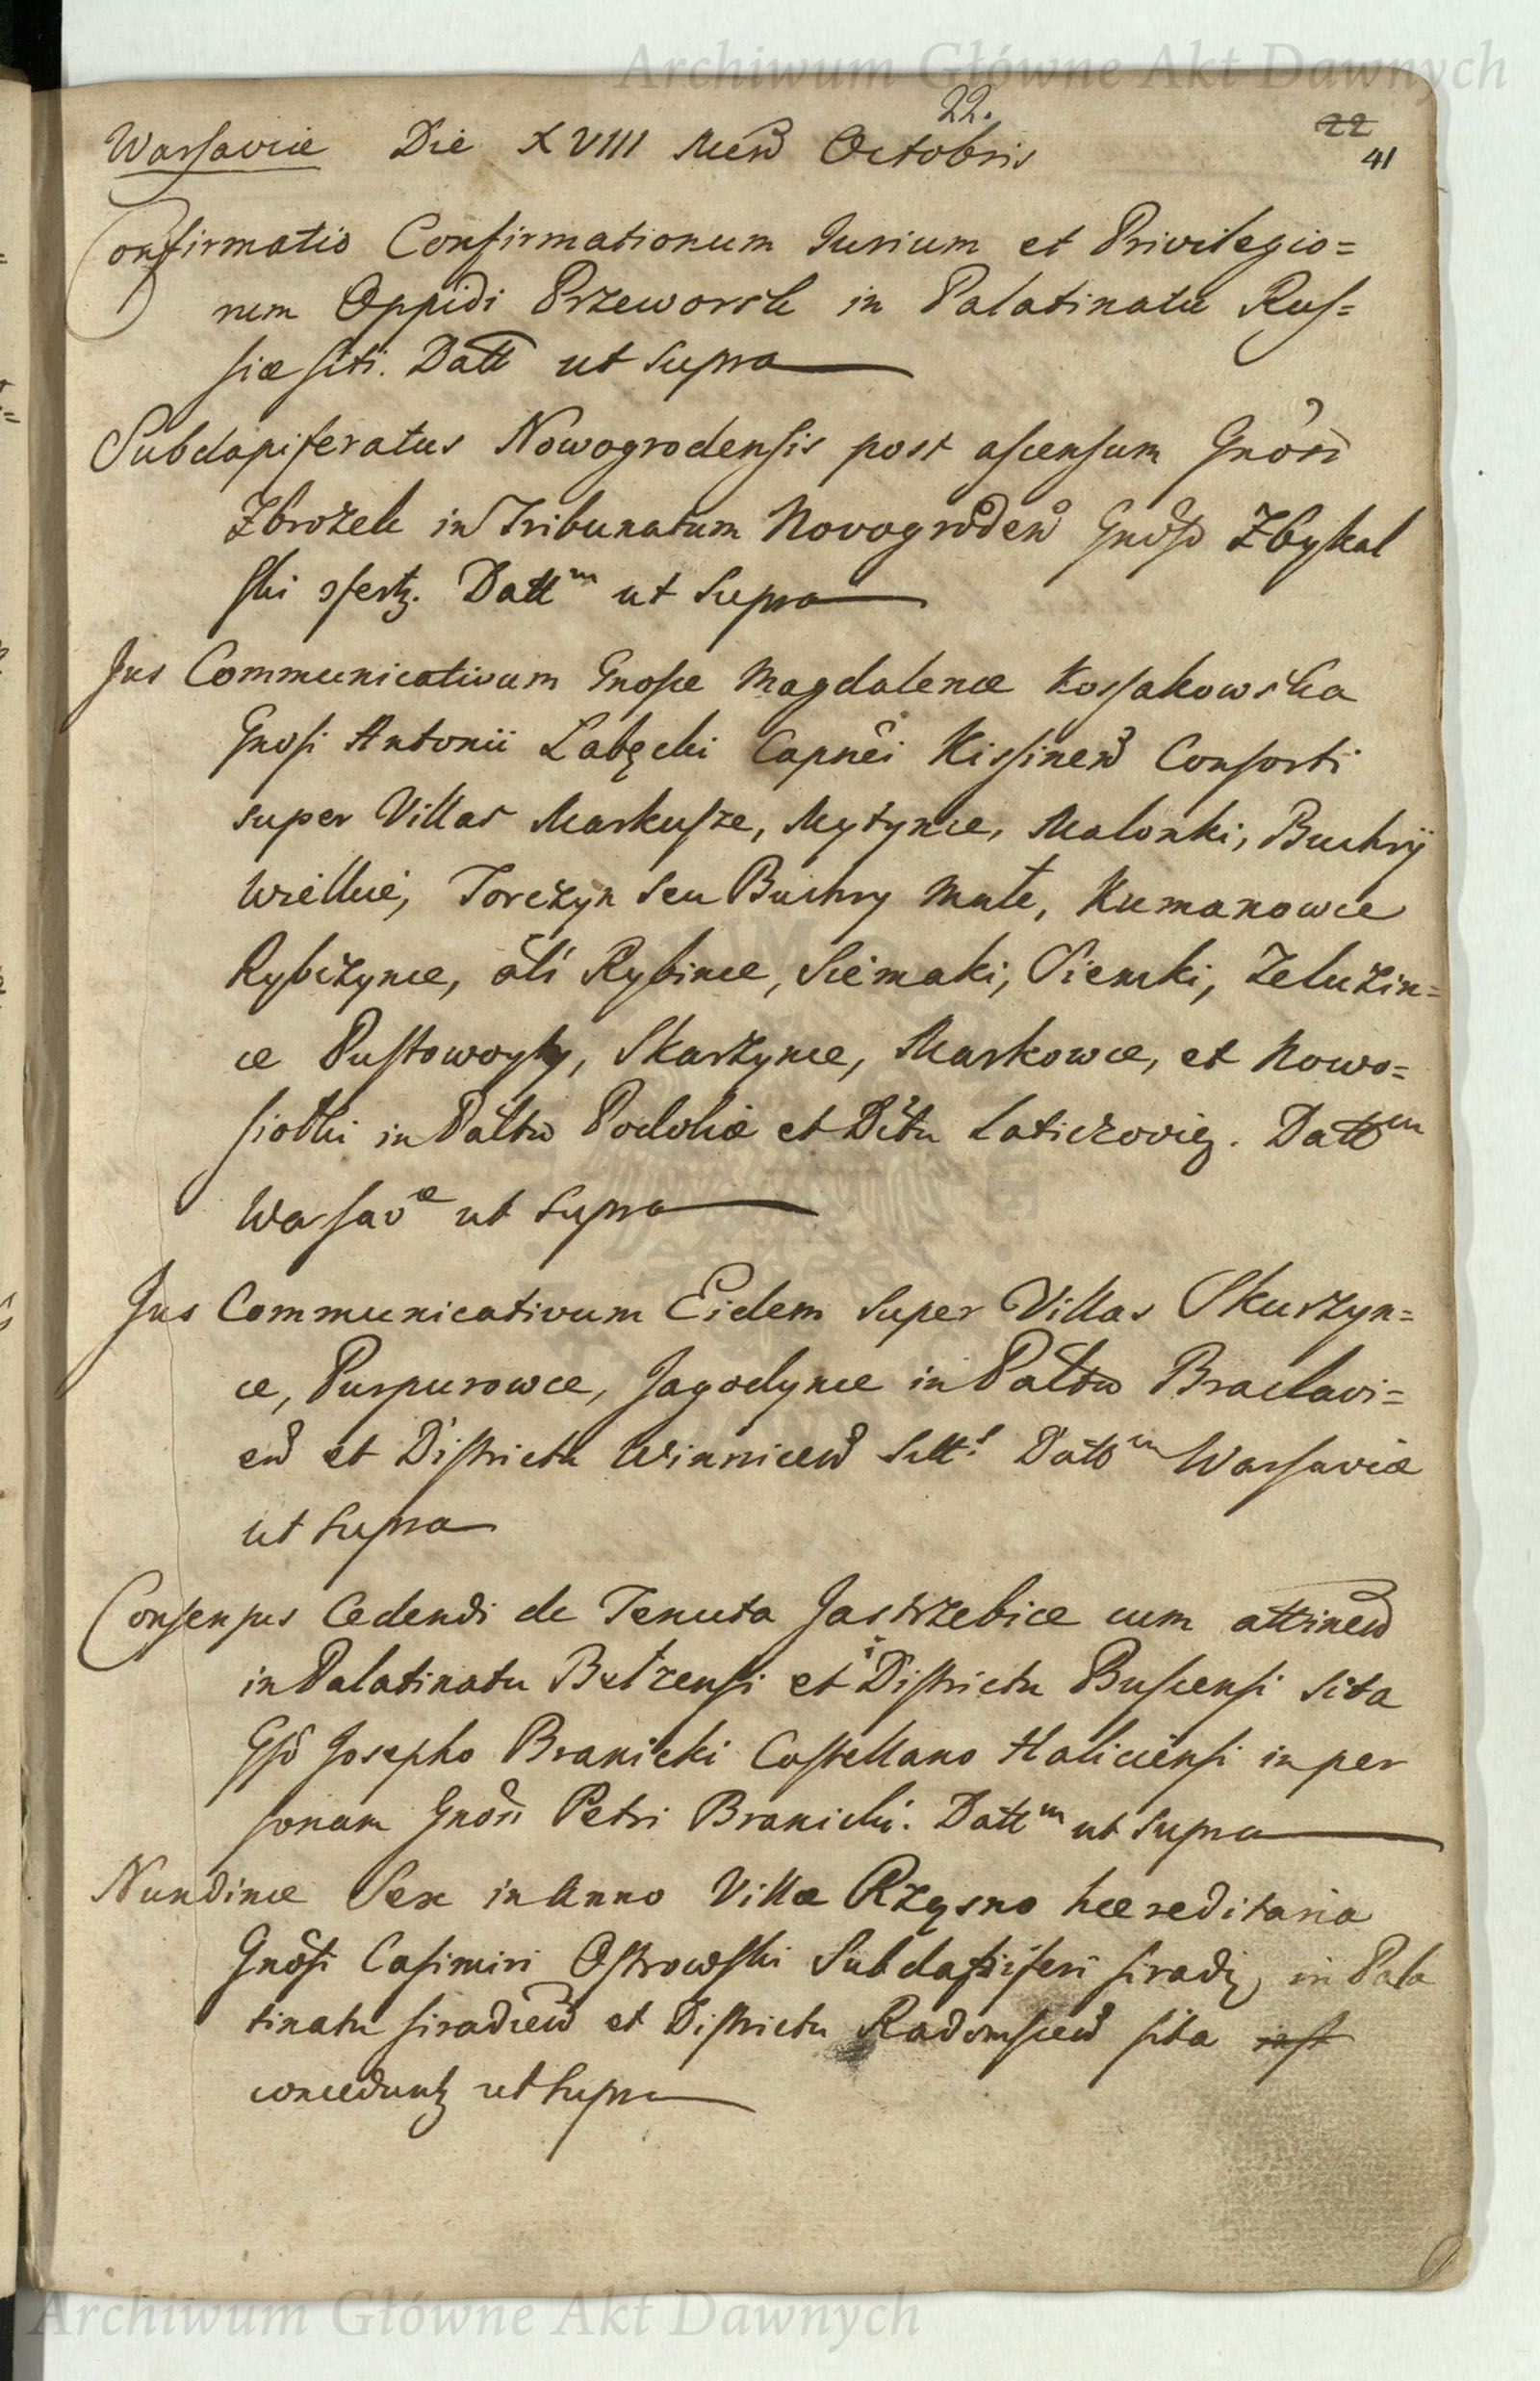 Archiwum Główne Akt Dawnych
22.
22
41
Warsaviæ Die XVIII Men̄ Octobris
Confirmatio Confirmationum Jurium et Privilegio=
rum Oppidi Przeworsk in Palatinatu Rus=
siæ siti. Datt ut supra
Subdapiferatus Nowogrodensis post ascensum Gnosi
Zbrożek in Tribunatum Novogroden̄ Gnoso Zbykal
ski Datt^m ut supra
Jus Communicativum Gnosæ Magdalenæ Kossakowska
Gnosi Antonii Łabęcki Capnei Kissinen̄ Consorti
super Villas Markusze, Mytynce, Malonki, Buchry
Wielkie, Torczyn seu Buchry Małe, Kumanowce
Rybczynce, ali Rybince, Siemaki, Sienki, Zeluzin=
ce Pustowoyty, Skarzynce, Markowce, et Nowo=
siołki in Paltu Podoliæ et Dctu Laticzovien. Datt^m
Warsav^æ ut supra
Jus Communicativum Eidem super Villas Skurzyn=
ce, Purpurowce, Jagodynce in Paltu Braclavi=
en̄ et Districtu Winnicen̄ Datt^m Warsaviæ
ut supra
Consensus Cedendi de Tenuta Jastrzebice cum attinen̄
in Palatinatu Bełzensi et Districtu Buscensi sita
Gso Josepho Branicki Castellano Haliciensi in per
sonam Gnosi Petri Branicki. Datt^m ut supra
Nundinæ Sex in Anno Villæ Rząsno hæreditaria
Gnosi Casimiri Ostrowski Subdapiferi siradien, in Pala
tinatu siradien̄ et Districtu Radomscen̄ sita
conceduntur ut supra
Archiwum Główne Akt Dawnych